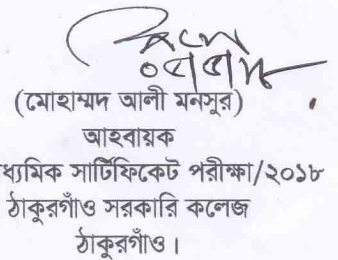 (মোহাম্মদ আলী মনসুর)
আহবায়ক
ধ্যমিক সার্টিফিকেট পরীক্ষা/২০১৮
ঠাকুরগাঁও সরকারি কলেজ
ঠাকুরগাঁও।